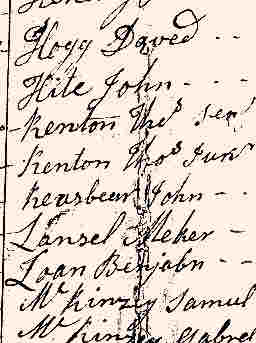 Hogg Daved - -
Hite John - - -
Kenton Thoˢ Senʳ
Kenton Thoˢ Junʳ
Keasbeen John - -
Lansel Meker -
Loan Benjabn - -
Mᶜ Kinzey Samul
Mᶜ Kinzey Gabrel